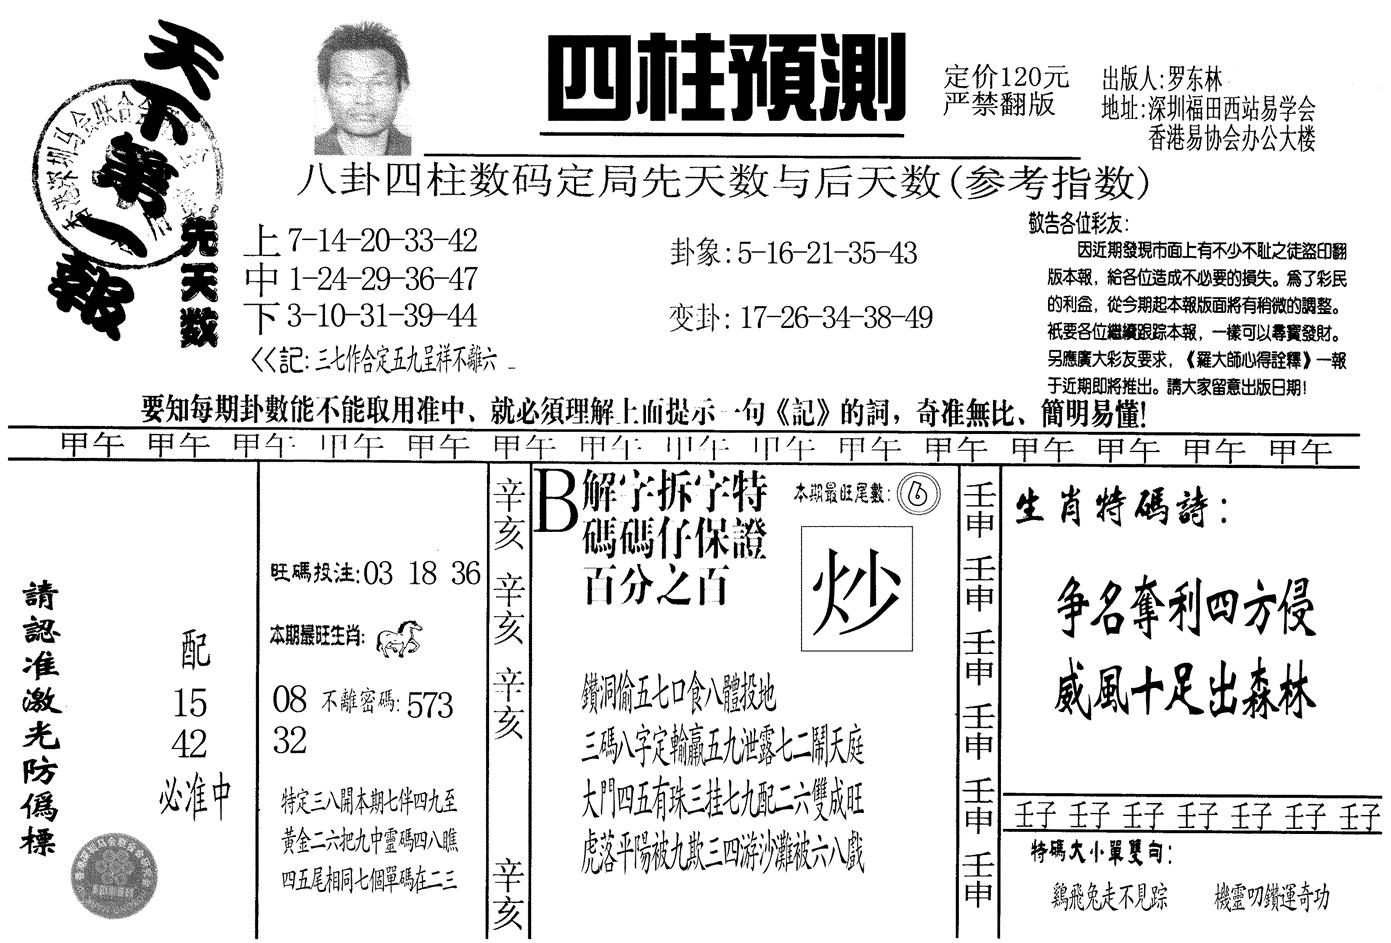 天下第一報
先天数
四柱預測
定价120元
严禁翻版
出版人:罗东林
地址:深圳福田西站易学会
香港易协会办公大楼
八卦四柱数码定局先天数与后天数(参考指数)
上 7-14-20-33-42
中 1-24-29-36-47
下 3-10-31-39-44
<<記: 三七作合定五九呈祥不離六
卦象: 5-16-21-35-43
变卦: 17-26-34-38-49
敬告各位彩友:
因近期發現市面上有不少不耻之徒盜印翻
版本報，給各位造成不必要的損失。爲了彩民
的利益，從今期起本報版面將有稍微的調整。
衹要各位繼續跟踪本報，一樣可以尋寶發財。
另應廣大彩友要求，《羅大師心得詮釋》一報
于近期即將推出。請大家留意出版日期!
要知每期卦數能不能取用准中、就必須理解上面提示一句《記》的詞，奇准無比、簡明易懂!
甲午 甲午 甲午 甲午 甲午 甲午 甲午 甲午 甲午 甲午 甲午 甲午 甲午 甲午 甲午
請認准激光防僞標
配
15
42
必准中
旺碼投注: 03 18 36
本期最旺生肖:
08 不離密碼: 573
32
特定三八開本期七伴四九至
黃金二六把九中靈碼四八瞧
四五尾相同七個單碼在二三
辛亥 辛亥 辛亥 辛亥
B 解字拆字特
碼碼仔保證
百分之百
本期最旺尾數: 6
炒
鑽洞偷五七口食八體投地
三碼八字定輸贏五九泄露七二鬧天庭
大門四五有珠三挂七九配二六雙成旺
虎落平陽被九欺三四游沙灘被六八戲
壬申 壬申 壬申 壬申 壬申 壬申
生肖特碼詩:
争名奪利四方侵
威風十足出森林
壬子 壬子 壬子 壬子 壬子 壬子 壬子
特碼大小單雙句:
鷄飛兔走不見踪 機靈叨鑽運奇功